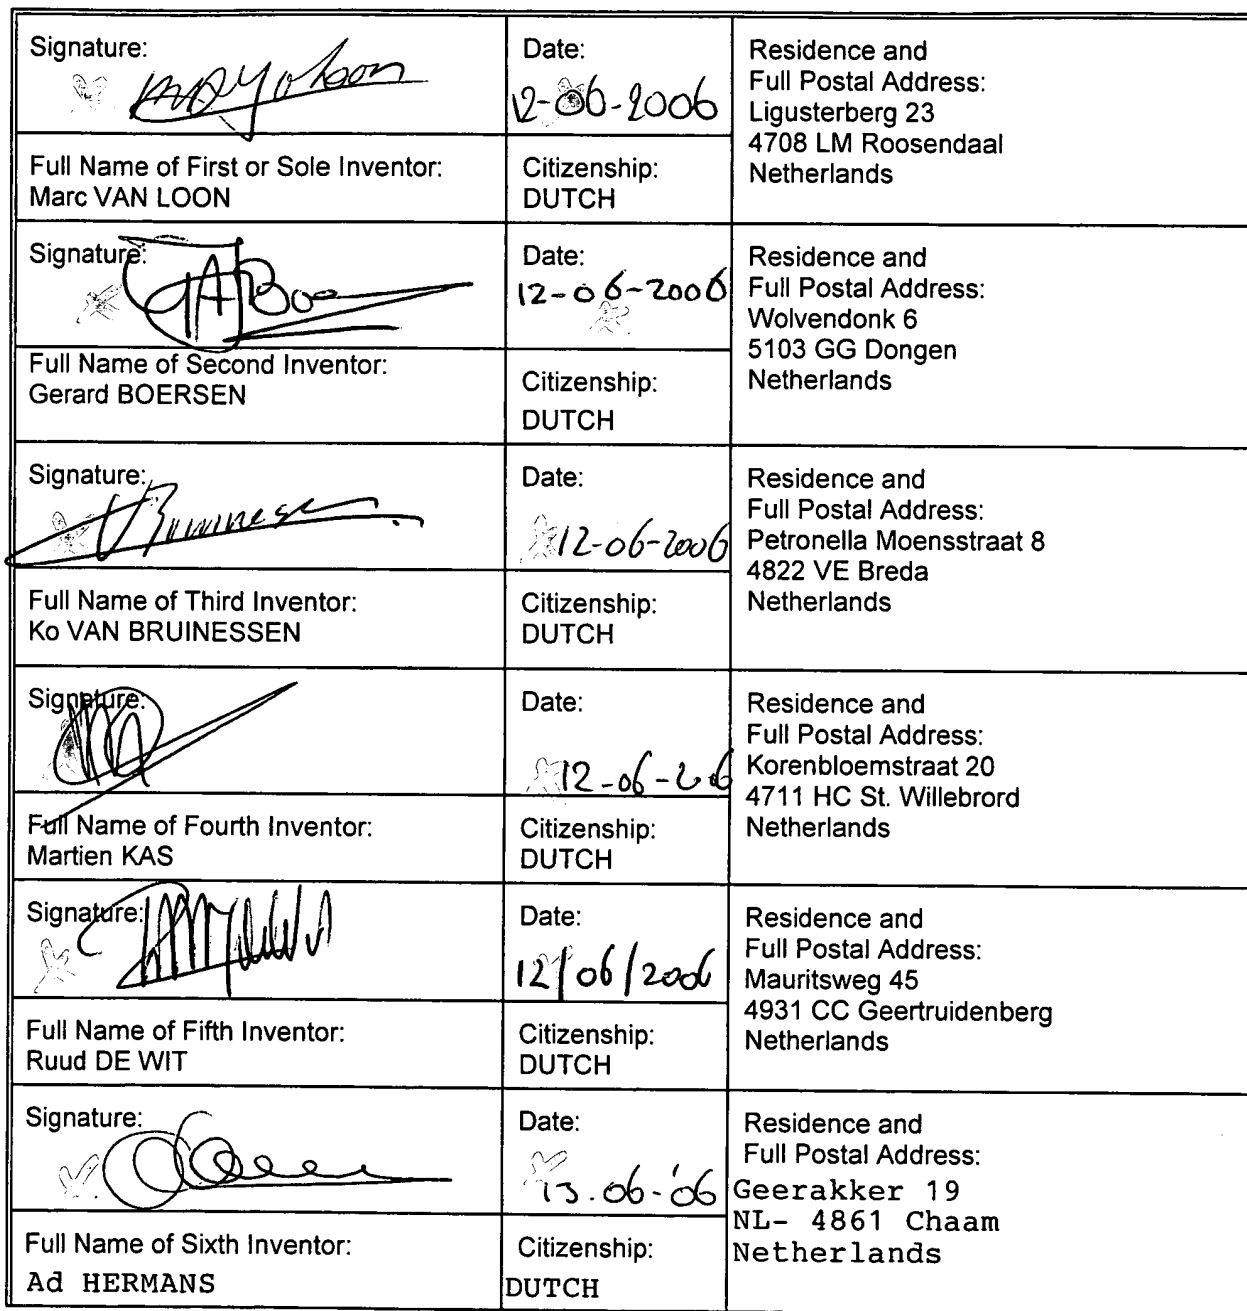 Signature:
Date:
12-06-2006
Residence and
Full Postal Address:
Ligusterberg 23
4708 LM Roosendaal
Netherlands
Full Name of First or Sole Inventor:
Marc VAN LOON
Citizenship:
DUTCH
Signature:
Date:
12-06-2006
Residence and
Full Postal Address:
Wolvendonk 6
5103 GG Dongen
Netherlands
Full Name of Second Inventor:
Gerard BOERSEN
Citizenship:
DUTCH
Signature:
Date:
12-06-2006
Residence and
Full Postal Address:
Petronella Moensstraat 8
4822 VE Breda
Netherlands
Full Name of Third Inventor:
Ko VAN BRUINESSEN
Citizenship:
DUTCH
Signature:
Date:
12-06-206
Residence and
Full Postal Address:
Korenbloemstraat 20
4711 HC St. Willebrord
Netherlands
Full Name of Fourth Inventor:
Martien KAS
Citizenship:
DUTCH
Signature:
Date:
12/06/2006
Residence and
Full Postal Address:
Mauritsweg 45
4931 CC Geertruidenberg
Netherlands
Full Name of Fifth Inventor:
Ruud DE WIT
Citizenship:
DUTCH
Signature:
Date:
13.06-'06
Residence and
Full Postal Address:
Geerakker 19
NL- 4861 Chaam
Netherlands
Full Name of Sixth Inventor:
Ad HERMANS
Citizenship:
DUTCH